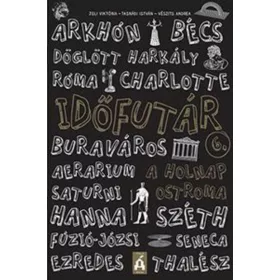 JELI VIKTÓRIA • TASNÁDI ISTVÁN • VÉSZITS ANDREA
ARKHÓN BÉCS
DÖGLÖTT HARKÁLY
RÓMA CHARLOTTE
IDŐFUTÁR
BURAVÁROS 6.
AERARIUM A HOLNAP
SATURNI OSTROMA
HANNA SZÉTH
FÚZIÓ-JÓZSI SENECA
EZREDES THALÉSZ